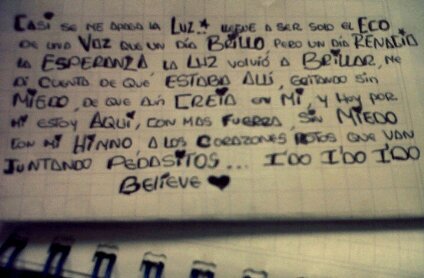 Casi se me apaga la Luz.* llegue a ser solo el Eco
de una Voz que un día Brilló pero un día RENACIO
la ESPERANZA la LUZ volvió a BRILLAR, me
di cuenta de que ESTABA ALLI, gritando sin
MIEDO, de que aún CREIA en Mi, y Hoy por
mi estoy AQUI, con mas FUERZA, sin MIEDO
con mi HIMNO, a los CORAZONES ROTOS que van
JUNTANDO PEDASITOS... I'DO I'DO I'DO
Believe ♥